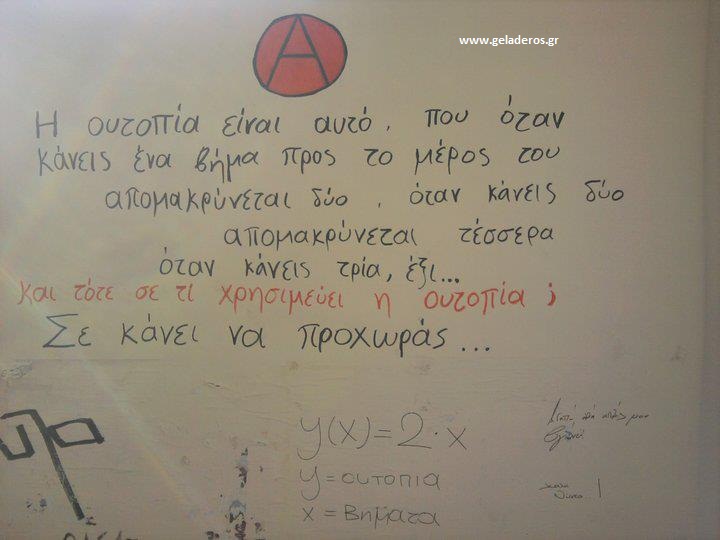 A
www.geladeros.gr
Η ουτοπία είναι αυτό, που όταν
κάνεις ένα βήμα προς το μέρος του
απομακρύνεται δύο, όταν κάνεις δύο
απομακρύνεται τέσσερα
όταν κάνεις τρία, έξι...
και τότε σε τί χρησιμεύει η ουτοπία ;
Σε κάνει να προχωράς...
y(x)=2·x
y=ουτοπια
x=βηματα